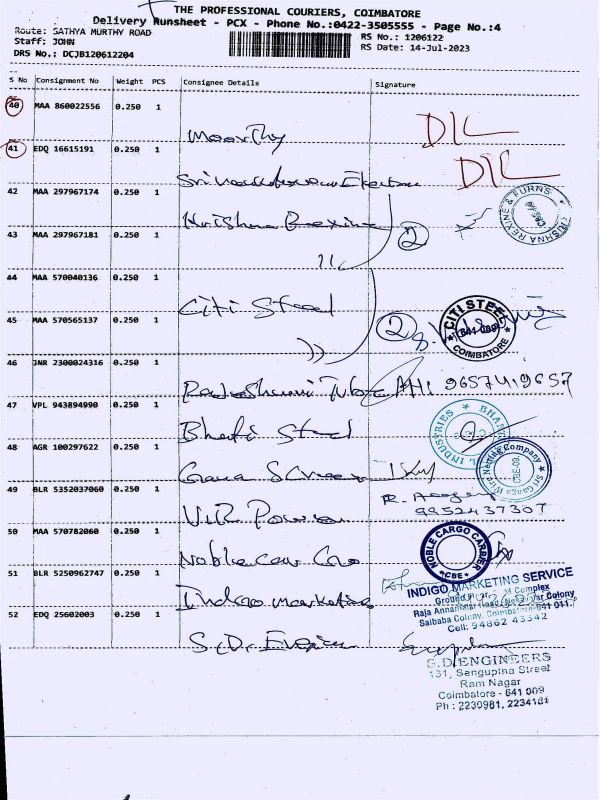 THE PROFESSIONAL COURIERS, COIMBATORE
Delivery Runsheet - PCX - Phone No.:0422-3505555 - Page No.:4
Route: SATHYA MURTHY ROAD
RS No.: 1206122
Staff: JOHN
RS Date: 14-Jul-2023
DRS No.: DCJB120612204
S No Consignment No Weight PCS Consignee Details Signature
40 MAA 860022556 0.250 1
Moorthy
41 EDQ 16615191 0.250 1
42 MAA 297967174 0.250 1
Krishna Rexine
2
43 MAA 297967181 0.250 1
44 MAA 570040136 0.250 1
Citi Steel
CITI STEEL
641 009
COIMBATORE
2
45 MAA 570565137 0.250 1
46 JNR 2300024316 0.250 1
9657419657
47 VPL 943894990 0.250 1
Bhati Steel
48 AGR 100297622 0.250 1
Sri Ganga Wire Netting Company
CBE-09.
49 BLR 5352037060 0.250 1
9952437307
VR Power
50 MAA 570782060 0.250 1
Noble Car Car
NOBLE CARGO CARRIER
CBE
51 BLR 5250962747 0.250 1
Indigo Marketing
INDIGO MARKETING SERVICE
Complex
Saibaba Colony, Coimbatore-641 011.
Cell: 94862 43342
52 EDQ 25602003 0.250 1
S.D. Engine
S.D.ENGINEERS
131, Sanguptha Street
Ram Nagar
Coimbatore - 641 009
Ph : 2230981, 2234181